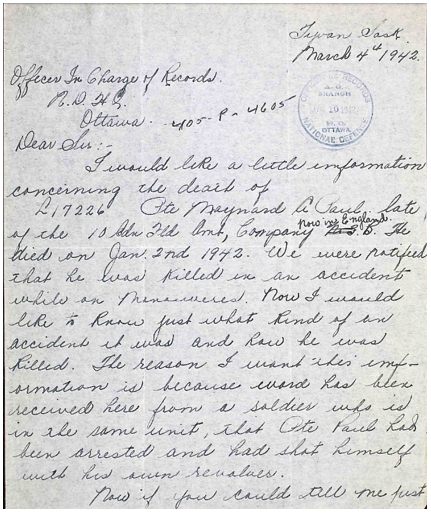 Tiwan Sask.
March 4th 1942.
Officer In Charge of Records.
N. D. H. Q.
Ottawa. 405-P-4605
OFFICER i/c RECORDS
A. G.
BRANCH
10 1942
OTTAWA
NATIONAL DEFENCE
Dear Sir:-
I would like a little imformation
concerning the death of
L17226 Pte Maynard A Paul, late
now in England
of the 10 Fld Amb, Company B. He
died on Jan. 2nd 1942. We were notified
that he was killed in an accident
while on Maneuveres. Now I would
like to know just what kind of an
accident it was and how he was
killed. The reason I want this imf-
ormation is because word has been
received here from a soldier who is
in the same unit, that Pte Paul had
been arrested and had shot himself
with his own revolver.
Now if you could tell me just